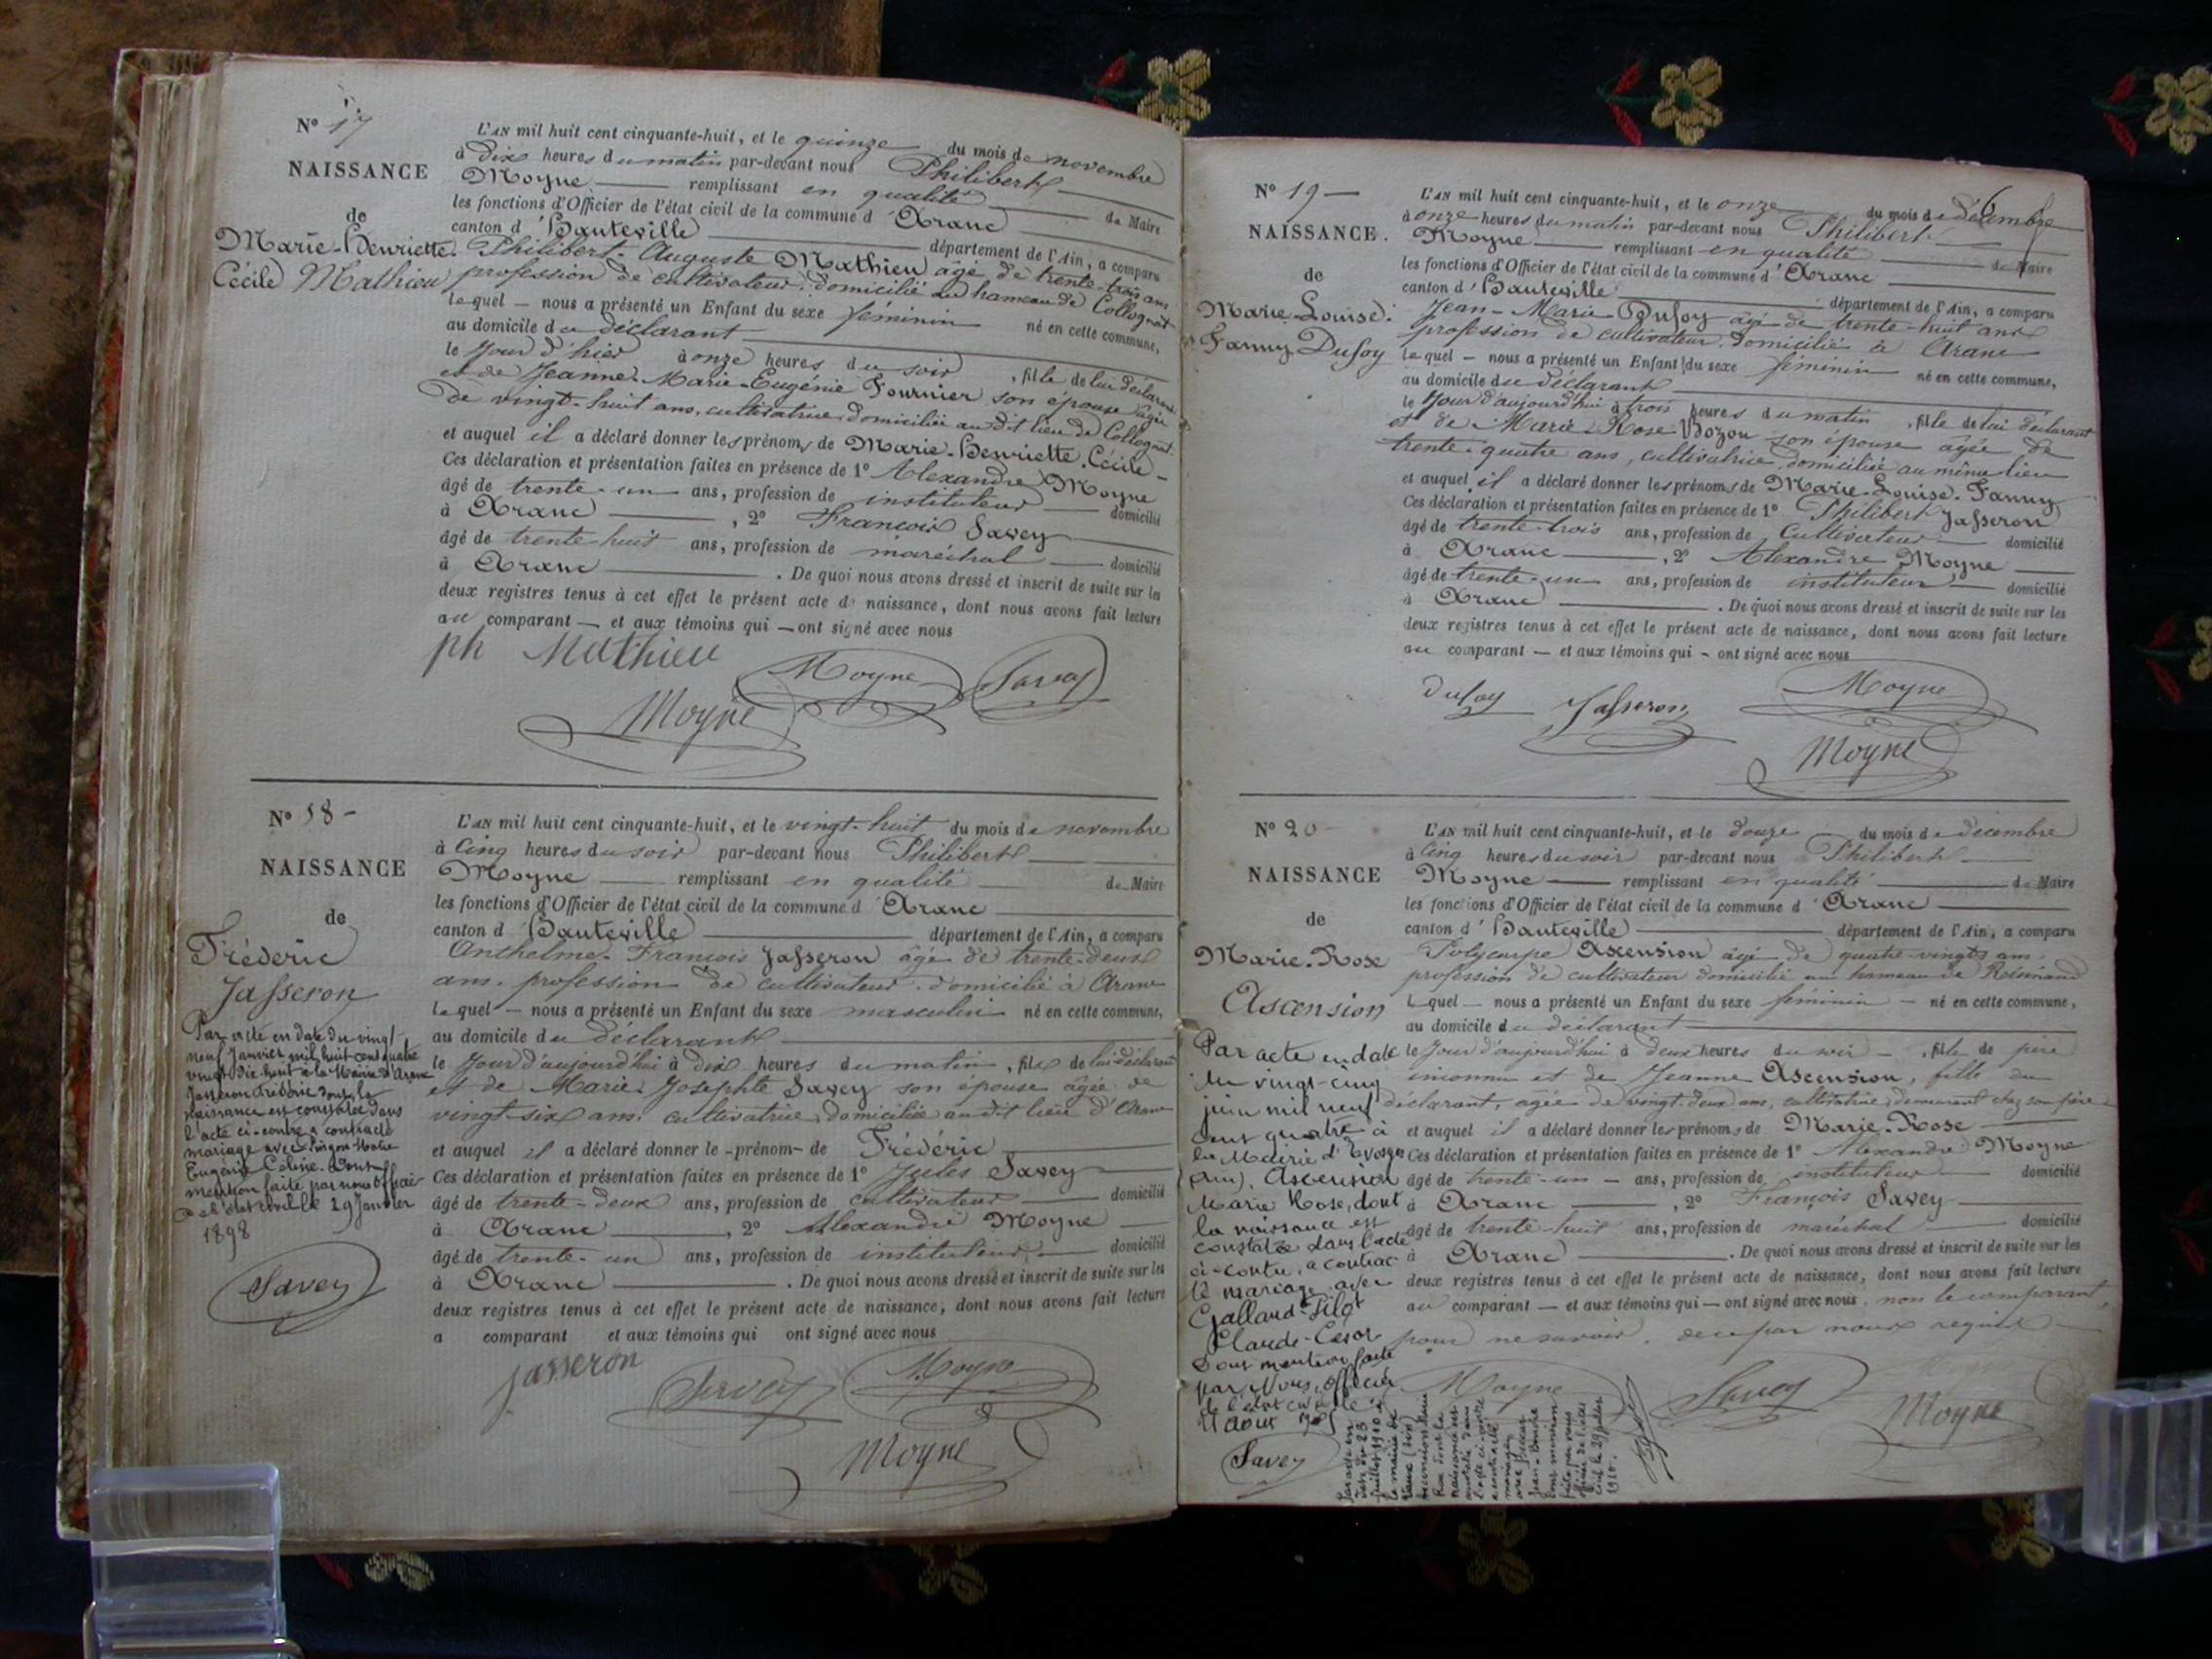 N° 17
NAISSANCE
de
Marie-Henriette.
Cécile Mathieu
L'AN mil huit cent cinquante-huit, et le quinze du mois de novembre
à Dix heures du matin par-devant nous Philibert
Moyne remplissant en qualité de Maire
les fonctions d'Officier de l'état civil de la commune d'Aranc
canton d'Hauteville département de l'Ain, a comparu
Philibert-Auguste Mathieu âgé de trente-trois ans
profession de cultivateur, domicilié au hameau de Collognat
lequel — nous a présenté un Enfant du sexe féminin né en cette commune,
au domicile du déclarant
le Jour d'hier à onze heures du soir, fille de lui déclarant
et de Jeanne-Marie-Eugénie Fournier son épouse âgée
de vingt-huit ans, cultivatrice, domiciliée au dit lieu de Collognat.
et auquel il a déclaré donner les prénoms de Marie-Henriette-Cécile-
Ces déclaration et présentation faites en présence de 1° Alexandre Moyne
âgé de trente-un ans, profession de instituteur domicilié
à Aranc, 2° François Savey
âgé de trente huit ans, profession de maréchal domicilié
à Aranc. De quoi nous avons dressé et inscrit de suite sur les
deux registres tenus à cet effet le présent acte de naissance, dont nous avons fait lecture
au comparant — et aux témoins qui — ont signé avec nous
ph Mathieu Moyne Savey
Moyne
N° 18-
NAISSANCE
de
Fréderic
Jasseron
Par acte en date du vingt-
neuf Janvier mil huit cent quatre
vingt dix-huit à la Mairie d'Aranc
Jasseron Frédéric dont la
naissance est constatée dans
l'acte ci-contre a contracté
mariage avec Marie
Eugénie Céline. Dont
mention faite par nous officier
de l'état civil le 29 Janvier
1898
Savey
L'AN mil huit cent cinquante-huit, et le vingt-huit du mois de novembre
à Cinq heures du soir par-devant nous Philibert
Moyne remplissant en qualité de Maire
les fonctions d'Officier de l'état civil de la commune d'Aranc
canton d'Hauteville département de l'Ain, a comparu
Anthelme-François Jasseron âgé de trente-deux
ans. profession de cultivateur. domicilié à Aranc
lequel — nous a présenté un Enfant du sexe masculin né en cette commune,
au domicile du Déclarant
le Jour d'aujourd'hui à dix heures du matin, fils de lui déclarant
et de Marie-Josephte Savey son épouse âgée de
vingt-six ans. cultivatrice, domiciliée au dit lieu d'Aranc
et auquel il a déclaré donner le -prénom- de Fréderic
Ces déclaration et présentation faites en présence de 1° Jules Savey
âgé de trente-deux ans, profession de cultivateur domicilié
à Aranc, 2° Alexandre Moyne
âgé de trente-un ans, profession de instituteur domicilié
à Aranc. De quoi nous avons dressé et inscrit de suite sur les
deux registres tenus à cet effet le présent acte de naissance, dont nous avons fait lecture
a comparant et aux témoins qui ont signé avec nous
Jasseron Savey Moyne
Moyne
N° 19 —
NAISSANCE.
de
Marie-Louise.
Fanny Dufoy
L'AN mil huit cent cinquante-huit, et le onze du mois de décembre
à onze heures du matin par-devant nous Philibert
Moyne remplissant en qualité de Maire
les fonctions d'Officier de l'état civil de la commune d'Aranc
canton d'Hauteville département de l'Ain, a comparu
Jean-Marie Dufoy âgé de trente-huit ans
profession de cultivateur. domicilié à Aranc
lequel — nous a présenté un Enfant du sexe féminin né en cette commune,
au domicile du déclarant
le Jour d'aujourd'hui à trois heures du matin, fille de lui déclarant
et de Marie-Rose Bozon son épouse âgée de
trente-quatre ans, cultivatrice, domiciliée au même lieu
et auquel il a déclaré donner les prénoms de Marie-Louise-Fanny
Ces déclaration et présentation faites en présence de 1° Philibert Jasseron
âgé de trente-trois ans, profession de Cultivateur domicilié
à Aranc, 2° Alexandre Moyne
âgé de trente-un ans, profession de instituteur domicilié
à Aranc. De quoi nous avons dressé et inscrit de suite sur les
deux registres tenus à cet effet le présent acte de naissance, dont nous avons fait lecture
au comparant — et aux témoins qui - ont signé avec nous
Dufoy Jasseron Moyne
Moyne
N° 20-
NAISSANCE
de
Marie-Rose
Ascension
Par acte en date
du vingt-cinq
juin mil neuf
cent quatre à
la Mairie d'Evosges
(Ain), Ascension
Marie Rose, dont
la naissance est
constatée dans l'acte
ci-contre, a contrac-
té mariage avec
Gallard-Filot
Claude-César
Dont mention faite
par Nous, Officier
de l'état civil le
Savey
L'AN mil huit cent cinquante-huit, et le douze du mois de décembre
à Cinq heures du soir par-devant nous Philibert
Moyne remplissant en qualité de Maire
les fonctions d'Officier de l'état civil de la commune d'Aranc
canton d'Hauteville département de l'Ain, a comparu
Polycarpe Ascension âgé de quatre-vingts ans.
profession de cultivateur domicilié au hameau de Résinand
lequel — nous a présenté un Enfant du sexe féminin — né en cette commune,
au domicile du déclarant
le Jour d'aujourd'hui à deux heures du soir -, fille de père
inconnu et de Jeanne Ascension, fille du
déclarant, agée de vingt-deux ans, cultivatrice, demeurant chez son père
et auquel il a déclaré donner les prénoms de Marie-Rose
Ces déclaration et présentation faites en présence de 1° Alexandre Moyne
âgé de trente-un — ans, profession de instituteur domicilié
à Aranc, 2° François Savey
âgé de trente-huit ans, profession de maréchal domicilié
à Aranc. De quoi nous avons dressé et inscrit de suite sur les
deux registres tenus à cet effet le présent acte de naissance, dont nous avons fait lecture
au comparant — et aux témoins qui — ont signé avec nous, non le comparant,
pour ne savoir, de ce par nous requis
Moyne Savey Moyne
Par acte en
date du 23
juillet 1910 à
la mairie de
Vaux (Ain)
Ascension Marie
Rose dont la
naissance est
constatée dans
l'acte ci-contre
a contracté
mariage
avec
Jean-
Dont mention
faite par nous
officier de l'état
civil le 29 juillet
1910.